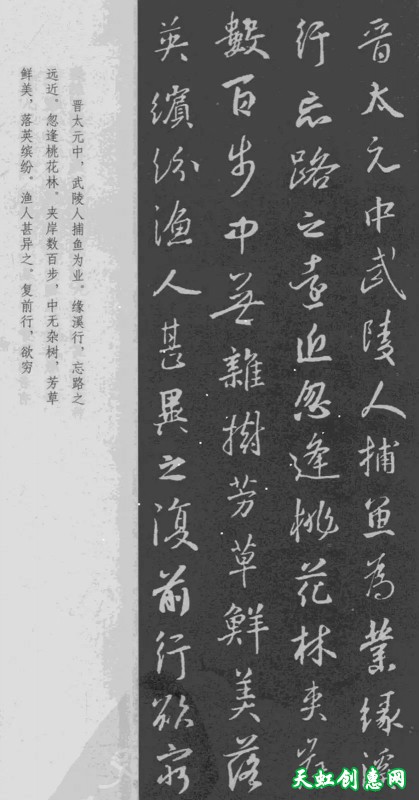 晋太元中武陵人捕鱼为業缘溪
行忘路之远近忽逢桃花林夹岸
數百步中无雜樹芳草鲜美落
英繽纷渔人甚異之復前行欲穷
晋太元中，武陵人捕鱼为业。缘溪行，忘路之
远近。忽逢桃花林，夹岸数百步，中无杂树，芳草
鲜美，落英缤纷。渔人甚异之。复前行，欲穷
天虹创意网